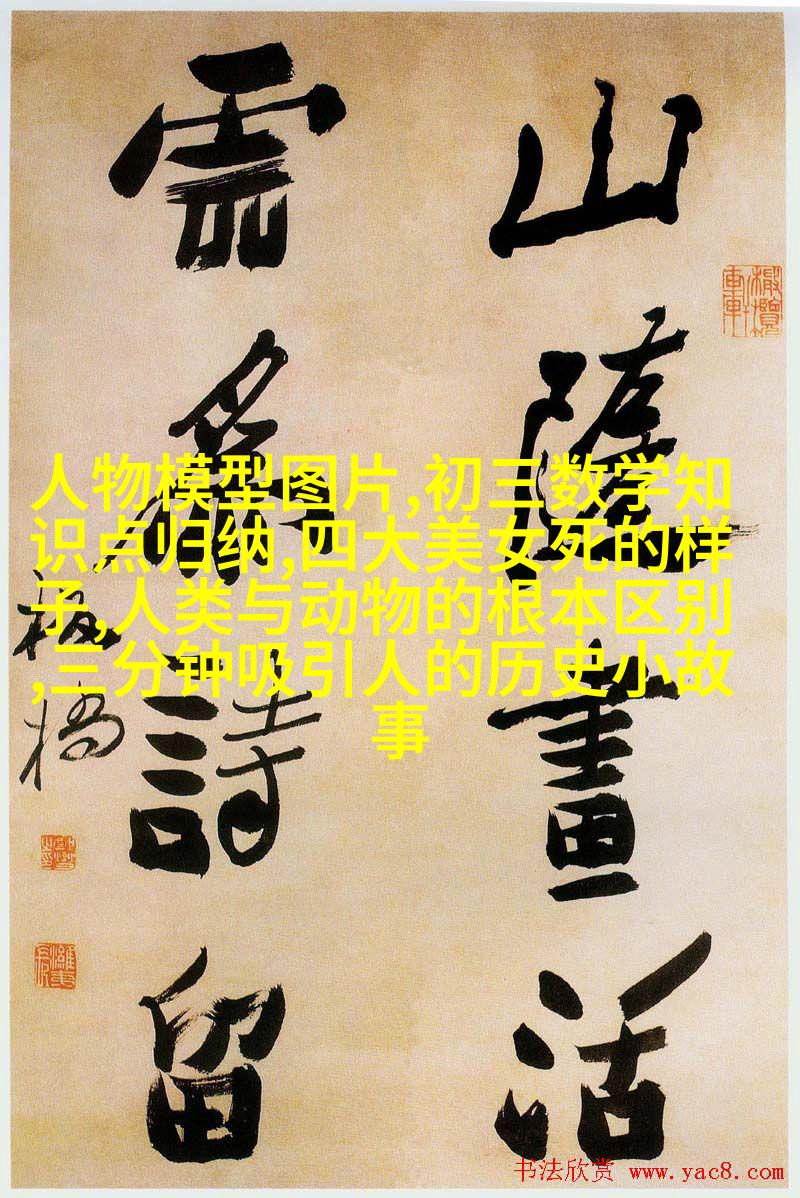 山隨畫活
雲爲詩留
板橋
人物模型图片,初三数学知
识点归纳,四大美女死的样
子,人类与动物的根本区别
,三分钟吸引人的历史小故
事
书法欣赏 www.yac8.com